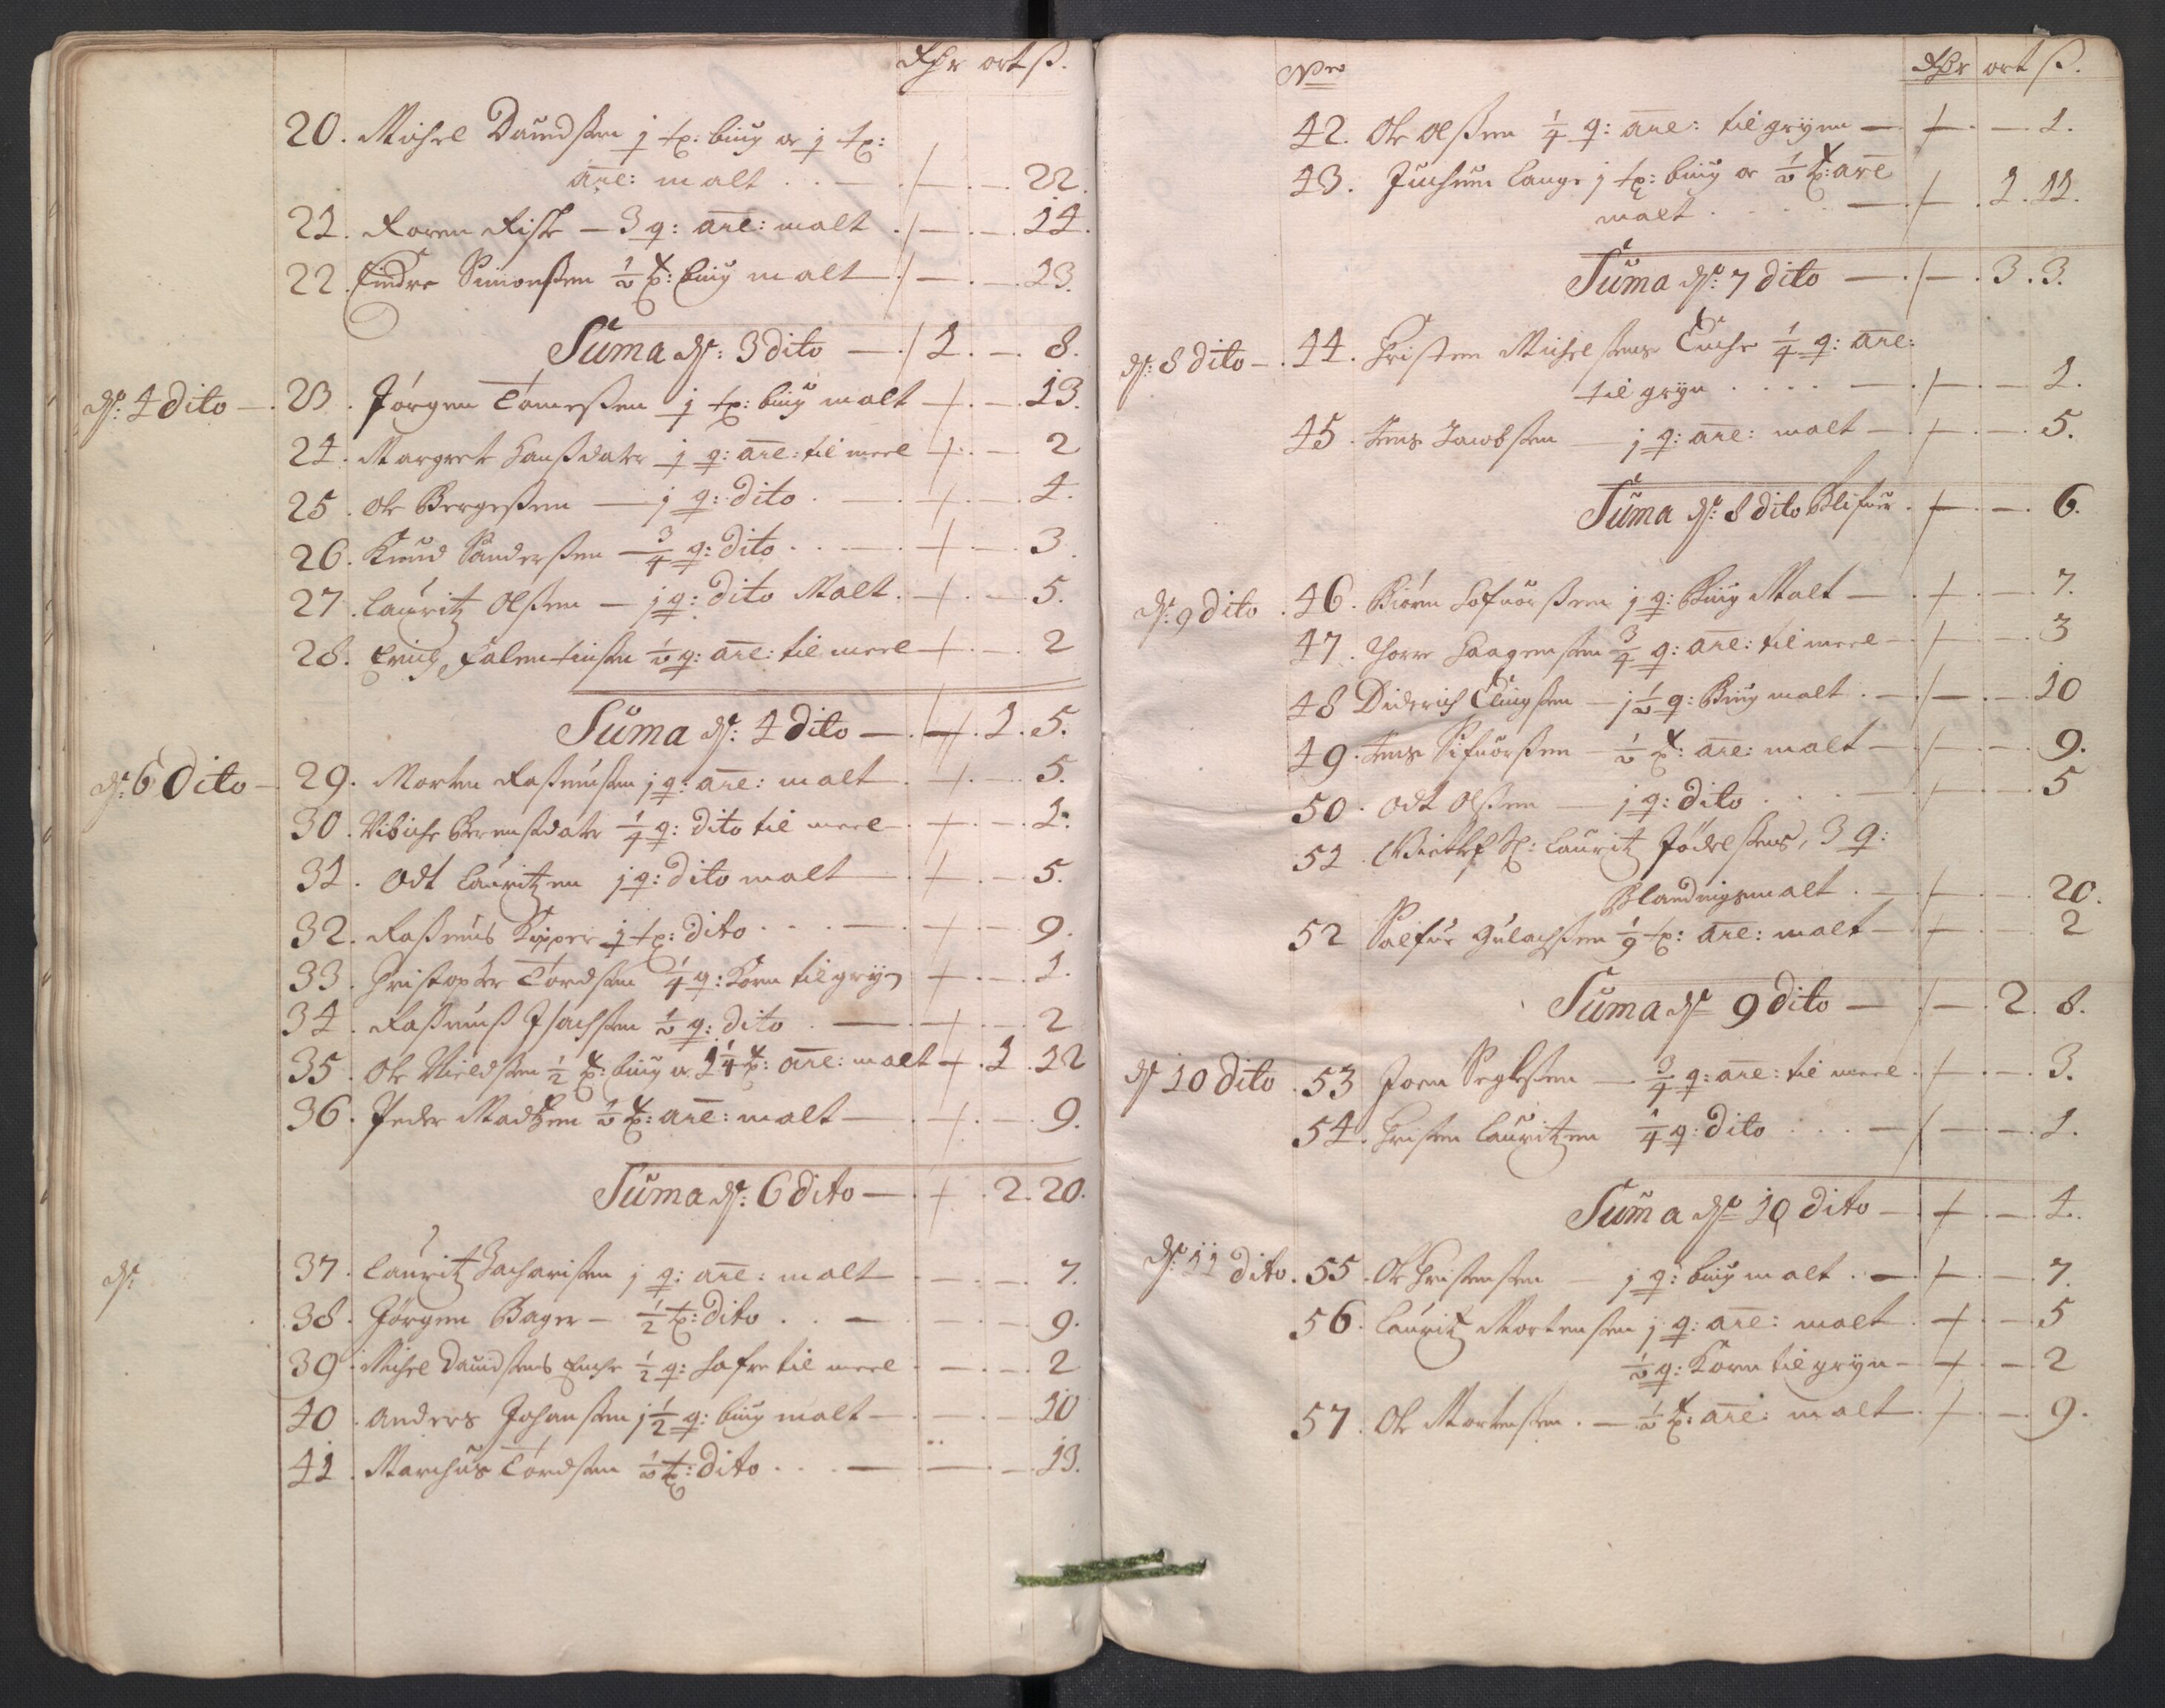 Rdr ort ß.
20. Michel Dauidsen j tp: biug oc j tp:
aűe: malt . . — ./. — . — . 22.
21. Karen Fisk — 3 q: aűe: malt ./. — . — . 14.
22. Eindre Simonsen ½ tp: biug malt — ./. — . — 13.
Suma dſ: 3 dito — ./ 1. — . 8.
dſ: 4 dito — . 23. Jørgen Tomessen j tp: biug malt — / . — . 13.
24. Margrete Hanßdater j q: aűe: til meel — / . — 2
25. Ole Bergessen — j q: dito . — . / . — . 4.
26. Knud Sanderssen — ¾ q: dito . . — . / . — . 3.
27. Lauritz Olssen — j q: dito Malt . — / . — 5.
28. Erich Falentinsen ½ q: aűe: til meel — / . — . 2
Suma dſ: 4 dito — . / . 1. 5.
dſ: 6 dito — 29. Morten Rasmussen j q: aűe: malt . / . — 5.
30. Vibiche Berensdater ¼ q: dito til meel — . / . — . 1.
31. Odt Lauritzen j q: dito malt — . / . — . 5.
32. Rasmus Kipper j tp: dito . . . — . / . — . 9.
33. Christopher Tordsen ¼ q: Korn til gryn / . — . 1.
34. Rasmus Isachsen ½ q: dito . — . / . — . 2
35. Ole Nielssen ½ tp: biug oc 1¼ tp: aűe: malt / . 1. 12
36. Peder Madtzen ½ tp: aűe: malt — . / . — . 9.
Suma dſ: 6 dito — . / . 2. 20.
dſ: 37. Lauritz Zacharissen j q: aűe: malt — . — . — . 7.
38. Jørgen Bager — ½ tp: dito . . — . — . — . 9.
39. Michel Dauidsens Enche ½ q: hafre til meel . — . — . 2
40. Anders Johansen j ½ q: biug malt — . — . — 10
41. Marchus Tordsen ½ tp: dito . . . — . — . — . 13.
No Rdr ort ß.
42. Ole Olssen ¼ q: aűe: til gryn — / . — . 1.
43. Jochum Lange j tp: biug oc ½ tp: aűe
malt . . . . — ./. — . 1. 11.
Suma dſ: 7 dito — ./. — . 3. 3.
dſ: 8 dito — . 44. Christen Michelsens Enche ¼ q: aűe:
til gryn . . . . — . / . — . 1.
45. Jens Jacobsen — j q: aűe: malt — . / . — . 5.
Suma dſ: 8 dito Blifuer . / . — . 6.
dſ: 9 dito . 46. Biørn Hofuorssen j q: Biug Malt — . / . — . 7.
47. Thorre Haagensen ¾ q: aűe: til meel — . / . — . 3
48 Diderich Ellingsen — j ½ q: Biug malt . — ./. — . — 10
49. Jens Sifuorssen — ½ tp: aűe: malt — . / . — . 9.
50. Odt Olssen — j q: dito . . . — . / . — . 5
51. Lauritz Jødelsens, 3 q:
Blandingsmalt . — / . — . 20.
52 Gulachsen tp: aűe: malt — / . — . 2
Suma dſ: 9 dito — ./. — . 2. 8.
dſ 10 dito . 53 Joen — ¾ q: aűe: til meel . / . — . 3.
54. Christen Lauritzen ¼ q: dito . . . — / . — . 1.
Suma dſ: 10 dito — . / . — . 4.
dſ: 11 dito . 55. Ole Christensen — j q: biug malt . — . / . — . 7.
56. Lauritz Mortensen j q: aűe: malt . / . — 5
½ q: Korn til gryn — / . — 2
57. Ole Mortensen . — ½ tp: aűe: malt . / . — . 9.